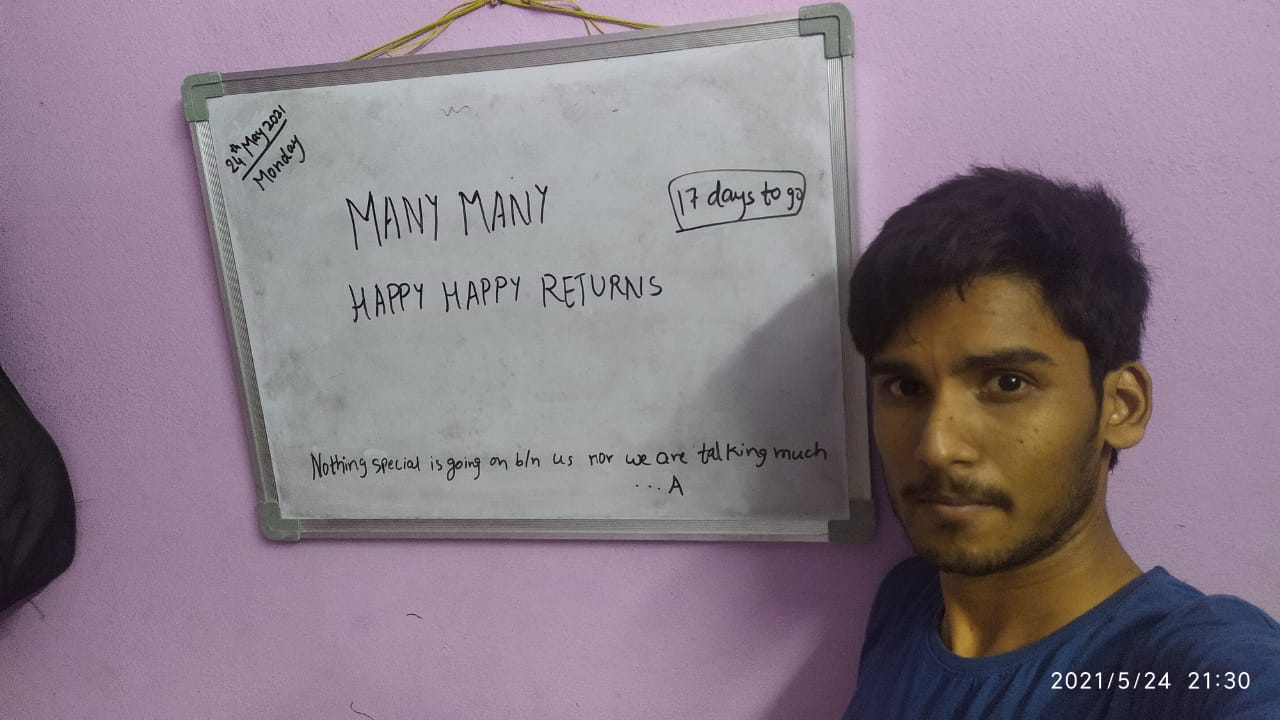 24th May 2021
Monday
MANY MANY
17 days to go
HAPPY HAPPY RETURNS
Nothing special is going on b/n us nor we are talking much
...A
2021/5/24 21:30